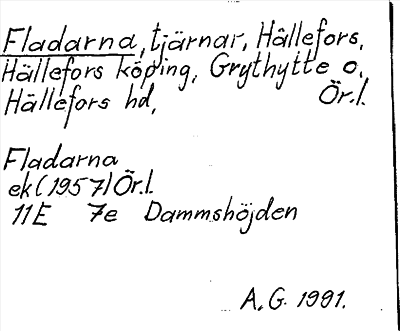 Fladarna, tjärnar, Hällefors,
Hällefors köping, Grythytte o.
Hällefors hd, Ör.l.
Fladarna
ek (1957) Ör.l.
11E 7e Dammshöjden
A.G. 1991.